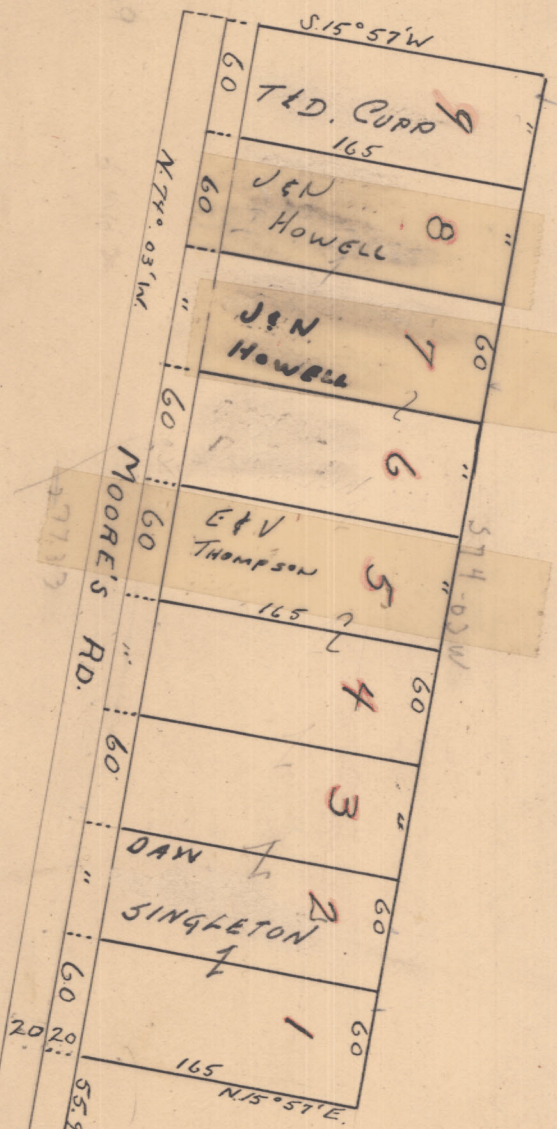 S.15°57'W
60
T&D. CUPP
9
"
165
60
J&N
HOWELL
8
"
N.74°.03'W.
"
J&N
HOWELL
7
60
60
6
"
MOORE'S RD.
60
E&V
THOMPSON
5
"
S74-03W
165
"
4
60
60
3
"
"
DAW
SINGLETON
2
60
60
1
60
20 20
165
N.15°57'E.
55.9